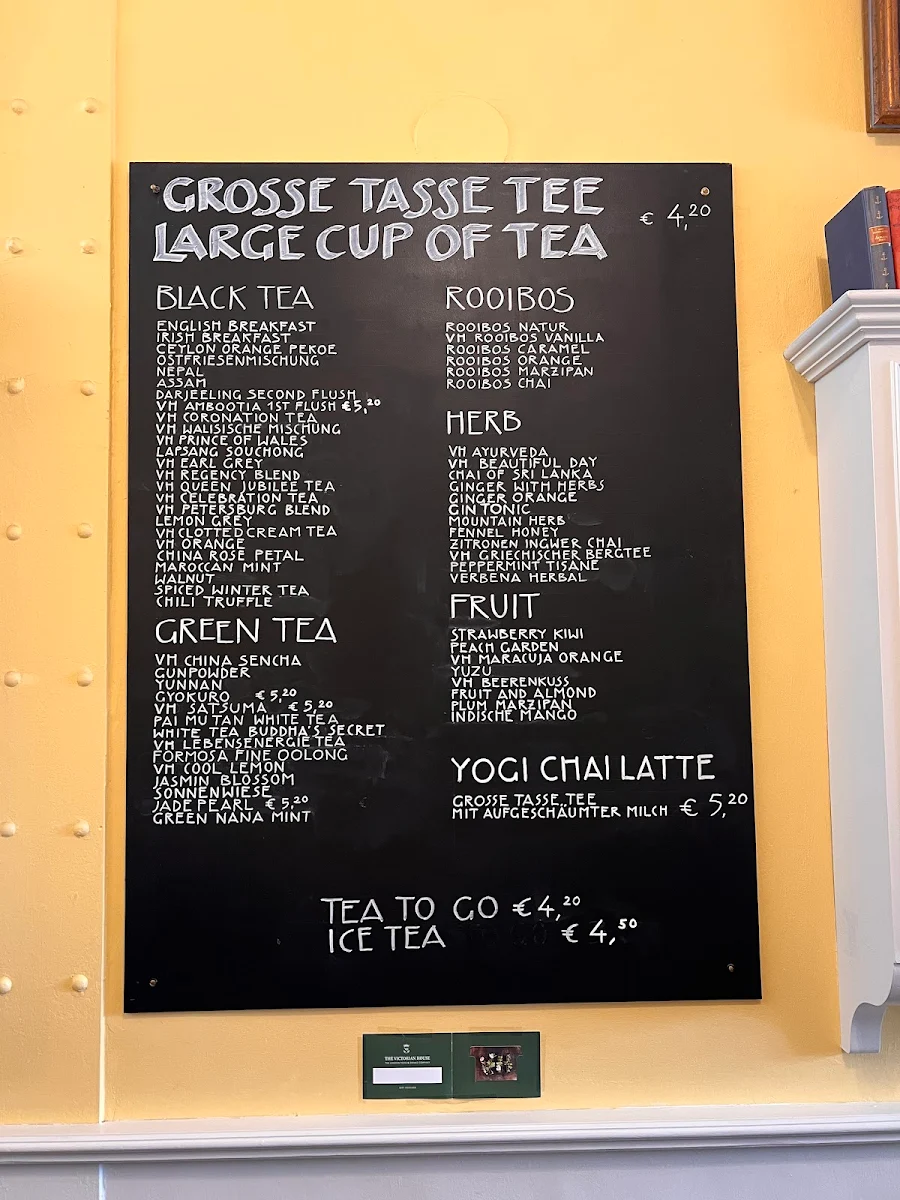 GROSSE TASSE TEE
LARGE CUP OF TEA
€ 4,20
BLACK TEA
ENGLISH BREAKFAST
IRISH BREAKFAST
CEYLON ORANGE PEKOE
OSTFRIESENMISCHUNG
NEPAL
ASSAM
DARJEELING SECOND FLUSH
VH AMBOOTIA 1ST FLUSH € 5,20
VH CORONATION TEA
VH WALISISCHE MISCHUNG
VH PRINCE OF WALES
LAPSANG SOUCHONG
VH EARL GREY
VH REGENCY BLEND
VH QUEEN JUBILEE TEA
VH CELEBRATION TEA
VH PETERSBURG BLEND
LEMON GREY
VH CLOTTED CREAM TEA
VH ORANGE
CHINA ROSE PETAL
MAROCCAN MINT
WALNUT
SPICED WINTER TEA
CHILI TRUFFLE
GREEN TEA
VH CHINA SENCHA
GUNPOWDER
YUNNAN
GYOKURO € 5,20
VH SATSUMA € 5,20
PAI MU TAN WHITE TEA
WHITE TEA BUDDHA'S SECRET
VH LEBENSENERGIE TEA
FORMOSA FINE OOLONG
VH COOL LEMON
JASMIN BLOSSOM
SONNENWIESE
JADE PEARL € 5,20
GREEN NANA MINT
ROOIBOS
ROOIBOS NATUR
VH ROOIBOS VANILLA
ROOIBOS CARAMEL
ROOIBOS ORANGE
ROOIBOS MARZIPAN
ROOIBOS CHAI
HERB
VH AYURVEDA
VH BEAUTIFUL DAY
CHAI OF SRI LANKA
GINGER WITH HERBS
GINGER ORANGE
GIN TONIC
MOUNTAIN HERB
FENNEL HONEY
ZITRONEN INGWER CHAI
VH GRIECHISCHER BERGTEE
PEPPERMINT TISANE
VERBENA HERBAL
FRUIT
STRAWBERRY KIWI
PEACH GARDEN
VH MARACUJA ORANGE
YUZU
VH BEERENKUSS
FRUIT AND ALMOND
PLUM MARZIPAN
INDISCHE MANGO
YOGI CHAI LATTE
GROSSE TASSE TEE
MIT AUFGESCHÄUMTER MILCH € 5,20
TEA TO GO € 4,20
ICE TEA € 4,50
THE VICTORIAN HOUSE